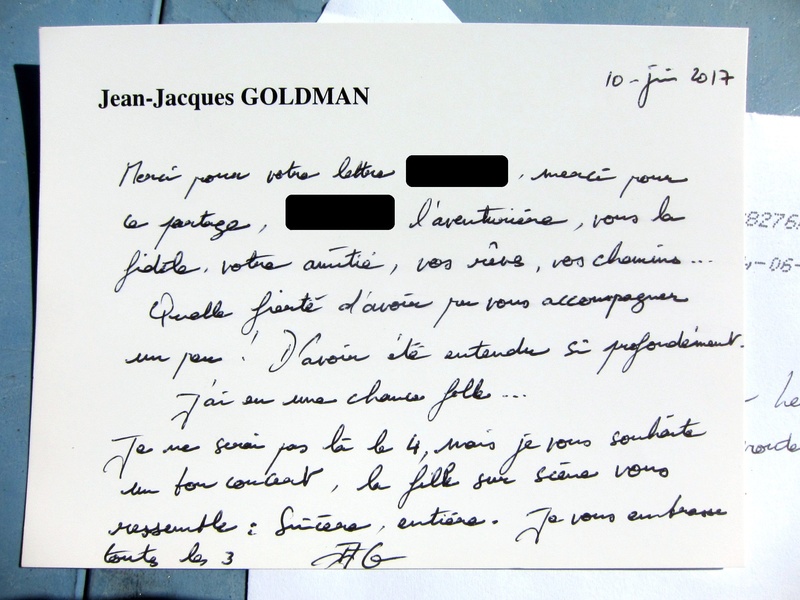 Jean-Jacques GOLDMAN
10 - juin 2017
Merci pour votre lettre , merci pour
ce partage, l'aventurière, vous la
fidèle, votre amitié, vos rêves, vos chemins...
Quelle fierté d'avoir pu vous accompagner
un peu ! D'avoir été entendu si profondément.
J'ai eu une chance folle...
Je ne serai pas là le 4, mais je vous souhaite
un bon concert, la fille sur scène vous
ressemble : Sincère, entière. Je vous embrasse
toutes les 3 JJG
8276
-06-